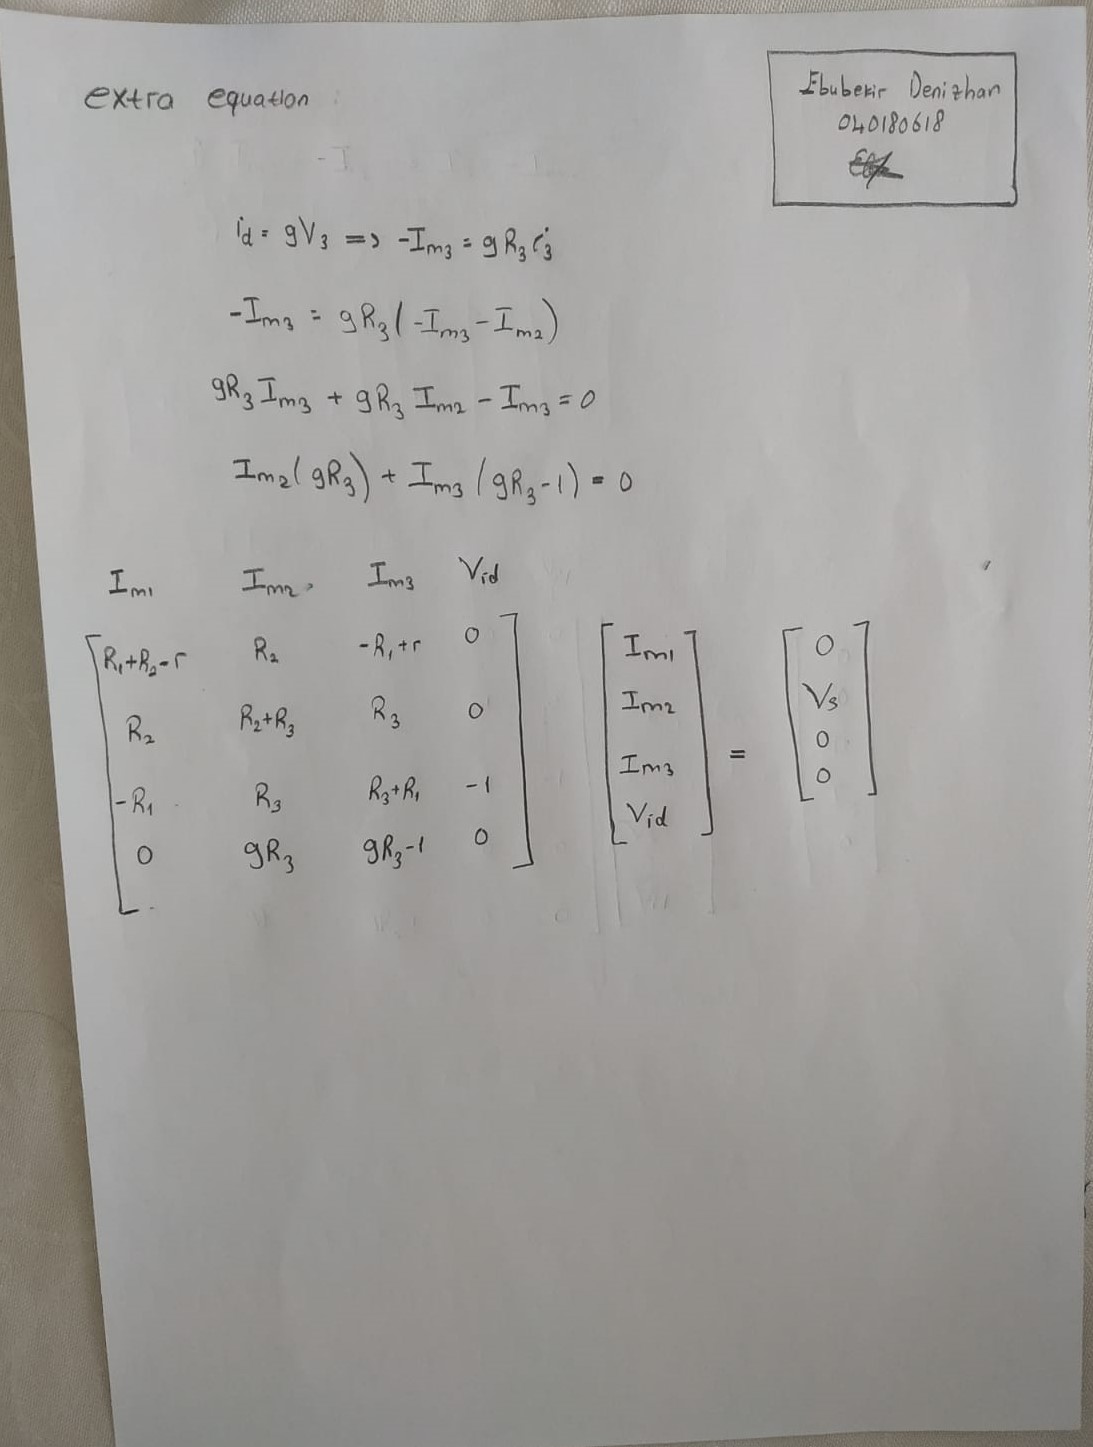 extra equation
Ebubekir Denizhan
040180618
id = gV3 => -Im3 = gR3 i3
-Im3 = gR3(-Im3-Im2)
gR3 Im3 + gR3 Im2 - Im3 = 0
Im2(gR3) + Im3(gR3-1) = 0
Im1 Im2 Im3 Vid
R1+R2-r R2 -R1+r 0
R2 R2+R3 R3 0
-R1 R3 R3+R1 -1
0 gR3 gR3-1 0
Im1
Im2
Im3
Vid
=
0
Vs
0
0